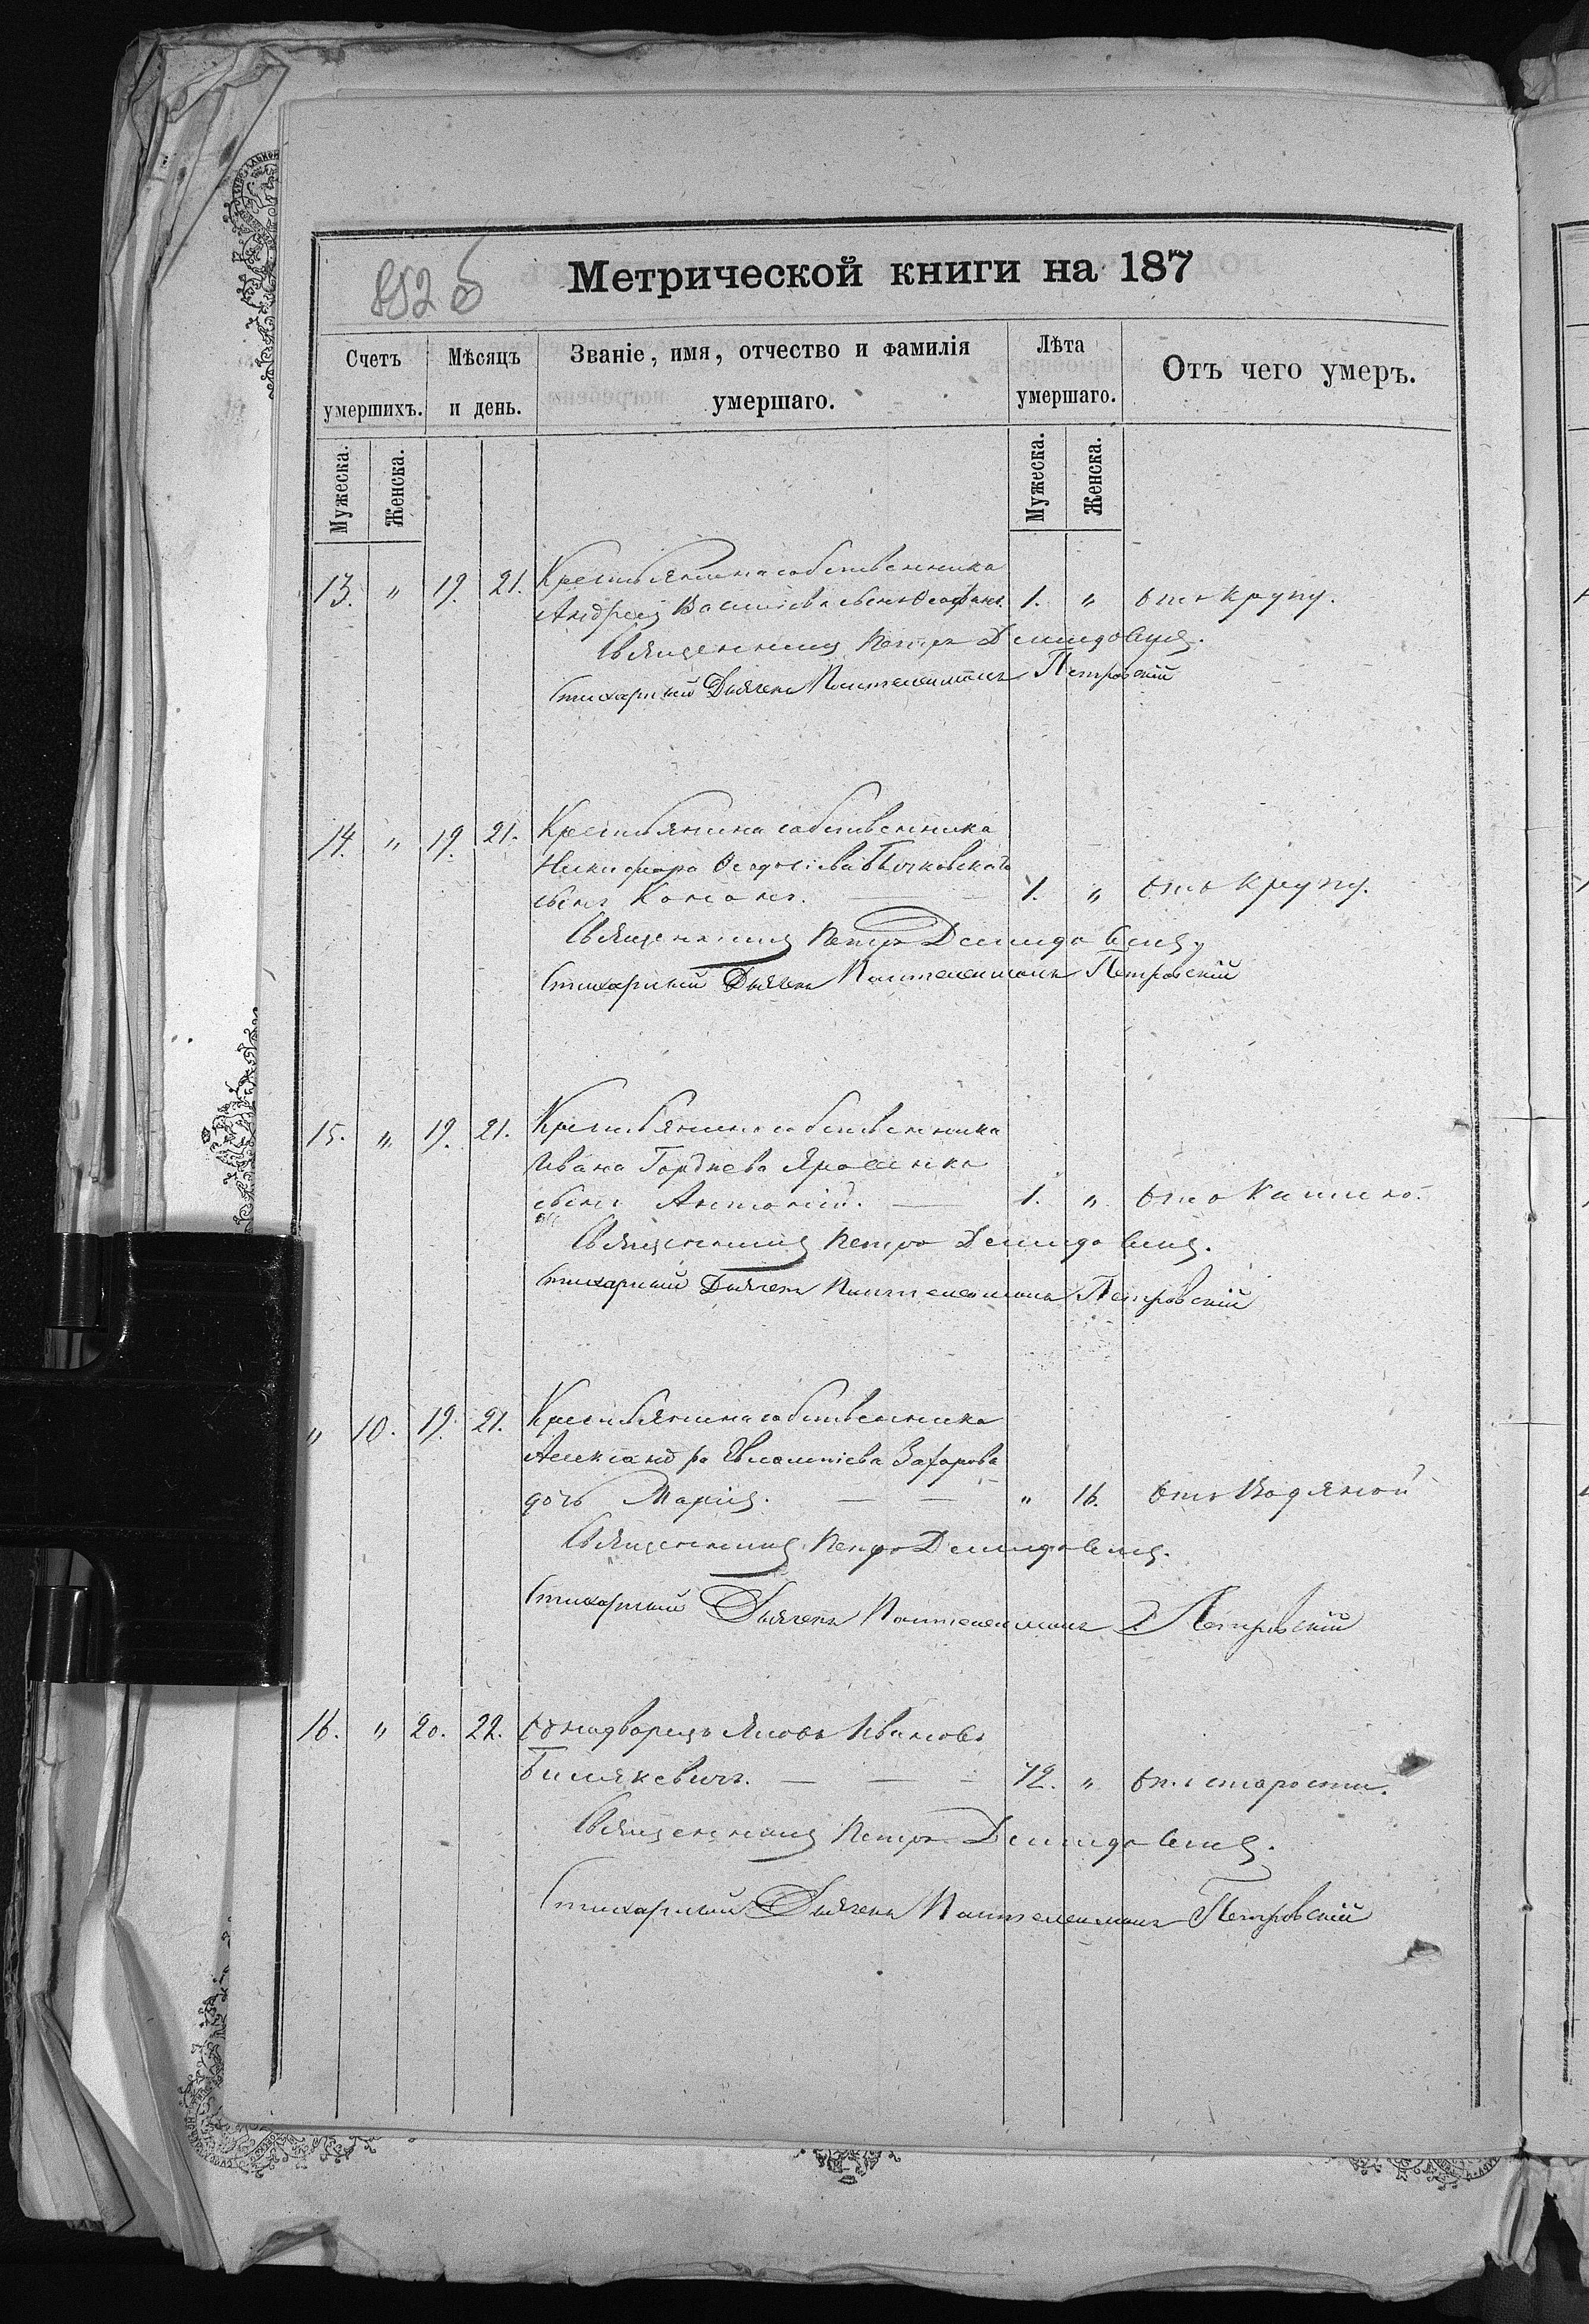 852 б
Метрической книги на 187
Счетъ умершихъ.
Мѣсяцъ и день.
Званіе, имя, отчество и фамилія умершаго.
Лѣта умершаго.
Отъ чего умеръ.
Мужеска.
Женска.
Мужеска.
Женска.
13. " 19. 21. Крестьянина собственника
Андрея сынъ 1. " отъ крупу.
Священникъ Петръ Демидовичъ.
Стихарный Дьячекъ Пантелеимонъ Петровскій
14. " 19. 21. Крестьянина собственника
Никифора Ѳеодосіева Бычковскаго
сынъ Кононъ. — 1. " отъ крупу.
Священникъ Петръ Демидовичъ
Стихарный Дьячекъ Пантелеимонъ Петровскій
15. " 19. 21. Крестьянина собственника
Ивана Гордіева
сынъ Антоній. — 1. " отъ кашлю.
Священникъ Петръ Демидовичъ.
Стихарный Дьячекъ Пантелеимонъ Петровскій
" 10. 19. 21. Крестьянина собственника
Александра Захарова
дочь Марія. — — " 16. отъ водяной
Священникъ Петръ Демидовичъ.
Стихарный Дьячекъ Пантелеимонъ Петровскій
16. " 20. 22. Однодворецъ Яковъ Ивановъ
— — — 72. " отъ старости.
Священникъ Петръ Демидовичъ.
Стихарный Дьячекъ Пантелеимонъ Петровскій